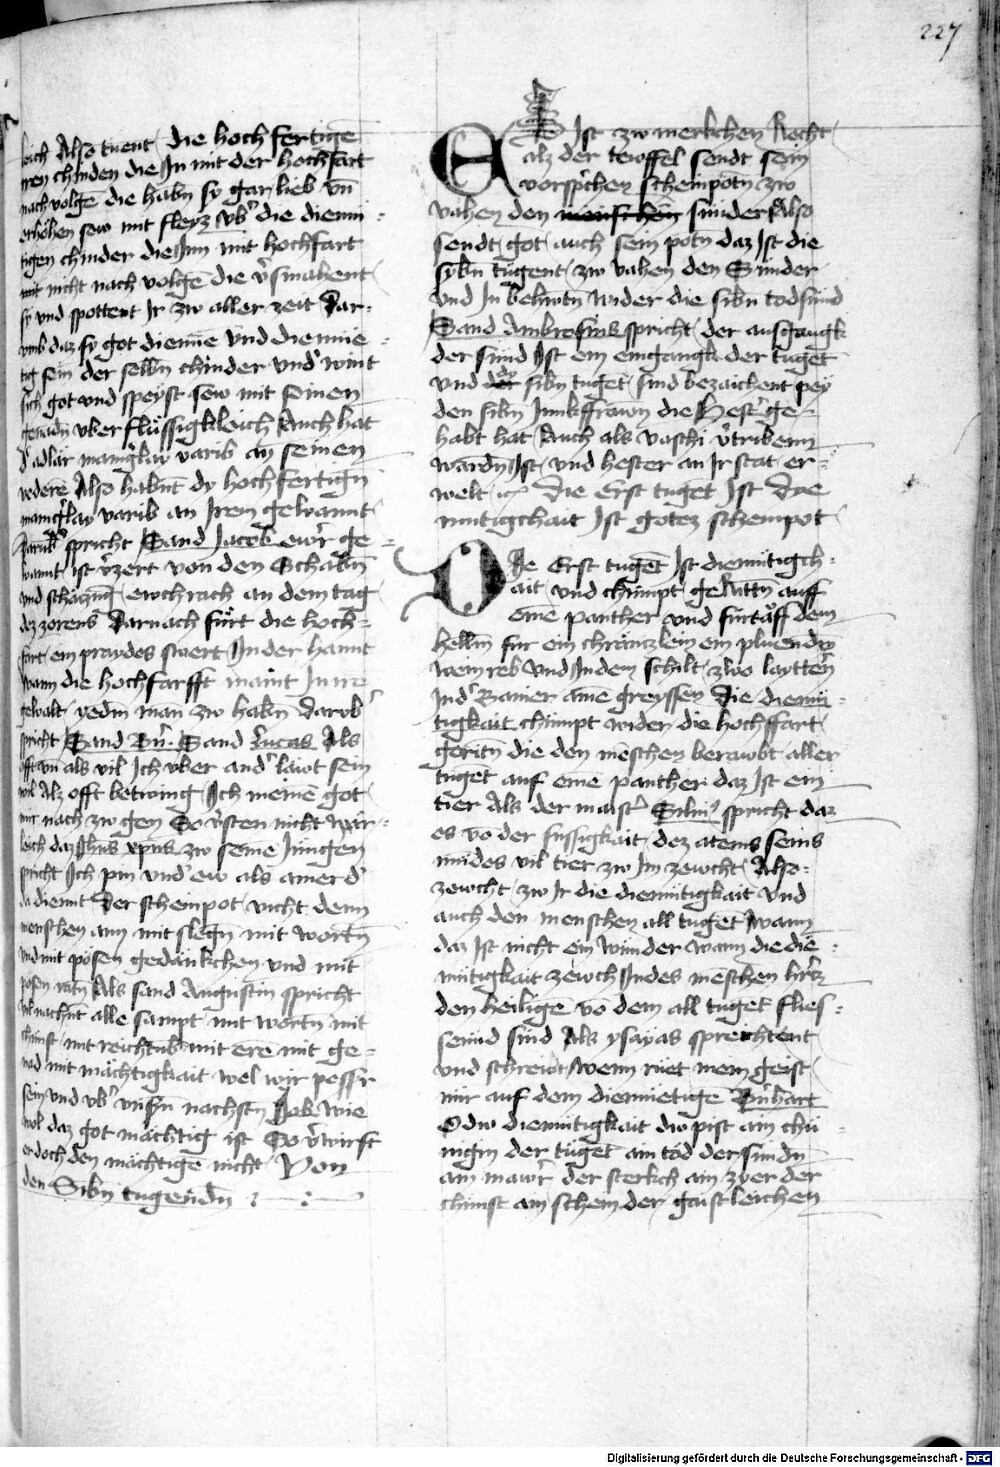 227
leich Also tuent die hoch fertigē
iren chinden die In mit der hochfart
nach volgē die habn̄ sy gar lieb vn̄
erhöhen sew mit fleyz vbˀ die diemü-
tigen chinder die Inn mit hochfart
mit nicht nach volgē die vˀsmahent
sy vnd spottent Ir zw aller zeit Dar-
vmb daz sy got dienne vnd diemüe-
tig sein der selbn̄ chinder vndˀ wint
sich got vnd speyst sew mit seinen
genadn̄ vberflüssigkleich Auch hat
dˀ adlar manigˀlay varib an seinen
vederē Also habnt dy hochfertign̄
manigˀlay varib an Irem gebannt
Darūbˀ spricht Sand Jacob ewˀr ge-
bannt ist vˀzert von den Schabn̄
vnd schāczung ewch rach an dem tag
dez zorens Darnach fürt die hoch-
fart ein praydes swert In der hannt
Wann die hochfarfft maint In ire
gewalt yedn̄ man zw habn̄ Darvbˀ
spricht Sand Bnˀ. Sand Lucas Als
offt vn̄ als vil Ich vber andˀ läwt sein
wil Alz offt betwing Ich meinē got
mir nach zw gen So vˀsten nicht War-
leich daz Ihūs xpūs zw seine Jungen
spricht Ich pin vndˀ ew als ainer dˀ
da dienet Der scheinpot vicht denn
menschen ann mit slegn̄ mit wortn̄
vnd mit pösen gedänkchen vnd mit
posen rātn̄ Als sand Augustin spricht
Wl nachnt alle sampt mit wortn̄ mit
chunst mit reichtūb mit ere mit ge-
nad mit mächtigkait wel wir pessˀr
sein vnd vbˀ vnsˀn nachstn̄ Job Wie
wol daz got mächtig ist So vˀwirfft
er doch den mächtigē nicht Von
den Sibn̄ tugendn̄
Es Ist zw merkchen Recht
alz der tewffel sendt sein
vorspˀchen scheinpotn̄ zw
vahen den menschen sünder Also
sendt got auch sein potn̄ daz Ist die
sybn̄ tugent zw vahen den Sünder
vnd In behuotn̄ wider die sibn̄ todsünd
Sand Ambrosius spricht der ausgangk
der sünd Ist ein eingangk der tugēt
vnd der dy sibn̄ tugēt sind bezaichent pey
den sibn̄ Junkffrawn̄ die Hestˀ ge-
habt hat Auch als vaschi vˀtribenn
wardn̄ Ist vnd hester an Ir stat er-
welt Die Erst tugēt Ist Dye
mutigchait Ist gotez scheinpot
Die Erst tugēt Ist diemütigch-
ait vnd chümpt geRittn̄ auff
eine panther vnd fürt auff dem
hellm̄ fur ein chränczlein ein pluendn̄
weinreb vnd In dem schilt zwo laytterˀ
In dˀ Banier aine greyffen Die diemü-
tigkait chümpt widen die hochffart
geritn̄ die den mēschen berawbt aller
tuget auf eine panther daz Ist ein
tier Als der maistˀ Solinˀ spricht daz
es vō der süssigkait dez atems seins
mūdes vil tier zw Im zewcht Also
zewcht zw Ir die diemütigkait vnd
auch den menschen all tuget Wann
daz Ist nicht ein wunder wann die die-
mütigkait zewch In des mēschen hˀrtz
den heiligē vō dem all tuget flies-
sennd sind Als ysayas sprechtent
vnd schreidt wenn rüet mein geist
nür auf dem diemüetigē Bnˀhart
O dw diemütigkait dw pist ain chü-
nigin der tugēt ain töd der sündn̄
ain mawˀr der sterkch ain zyer der
chünst ain schein der gaistleichen
Digitalisierung gefördert durch die Deutsche Forschungsgemeinschaft - DFG